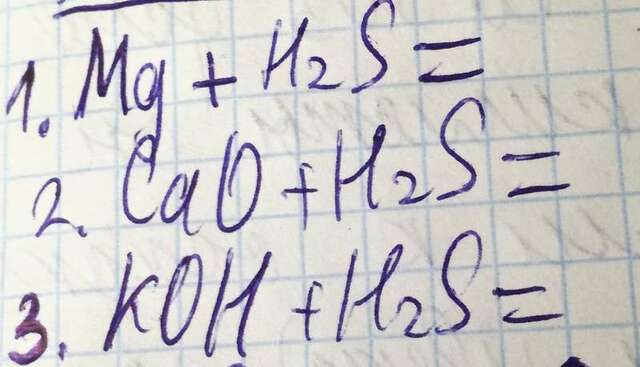 1. Mg + H₂S =
2. CaO + H₂S =
3. KOH + H₂S =